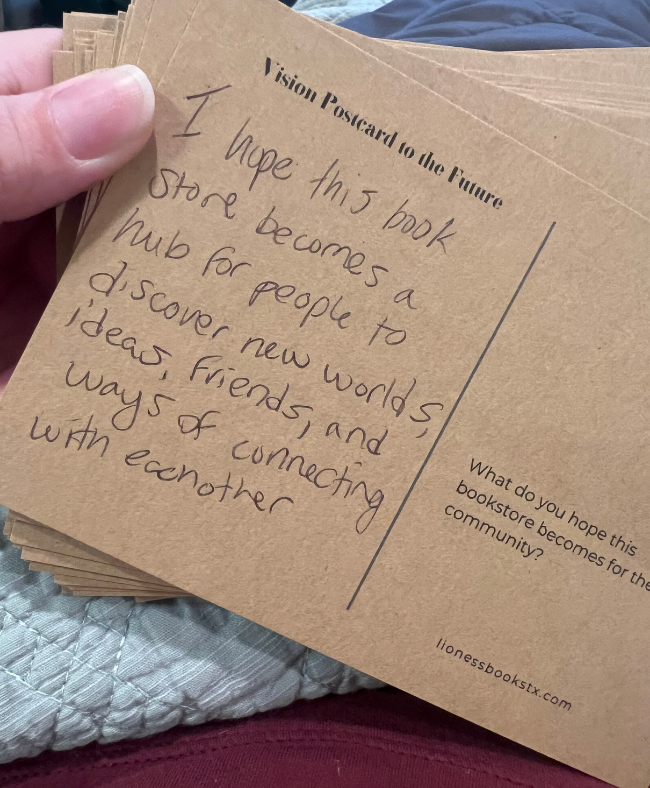 Vision Postcard to the Future
I hope this book
store becomes a
hub for people to
discover new worlds,
ideas, friends, and
ways of connecting
with eachother
What do you hope this
bookstore becomes for the
community?
lionessbookstx.com